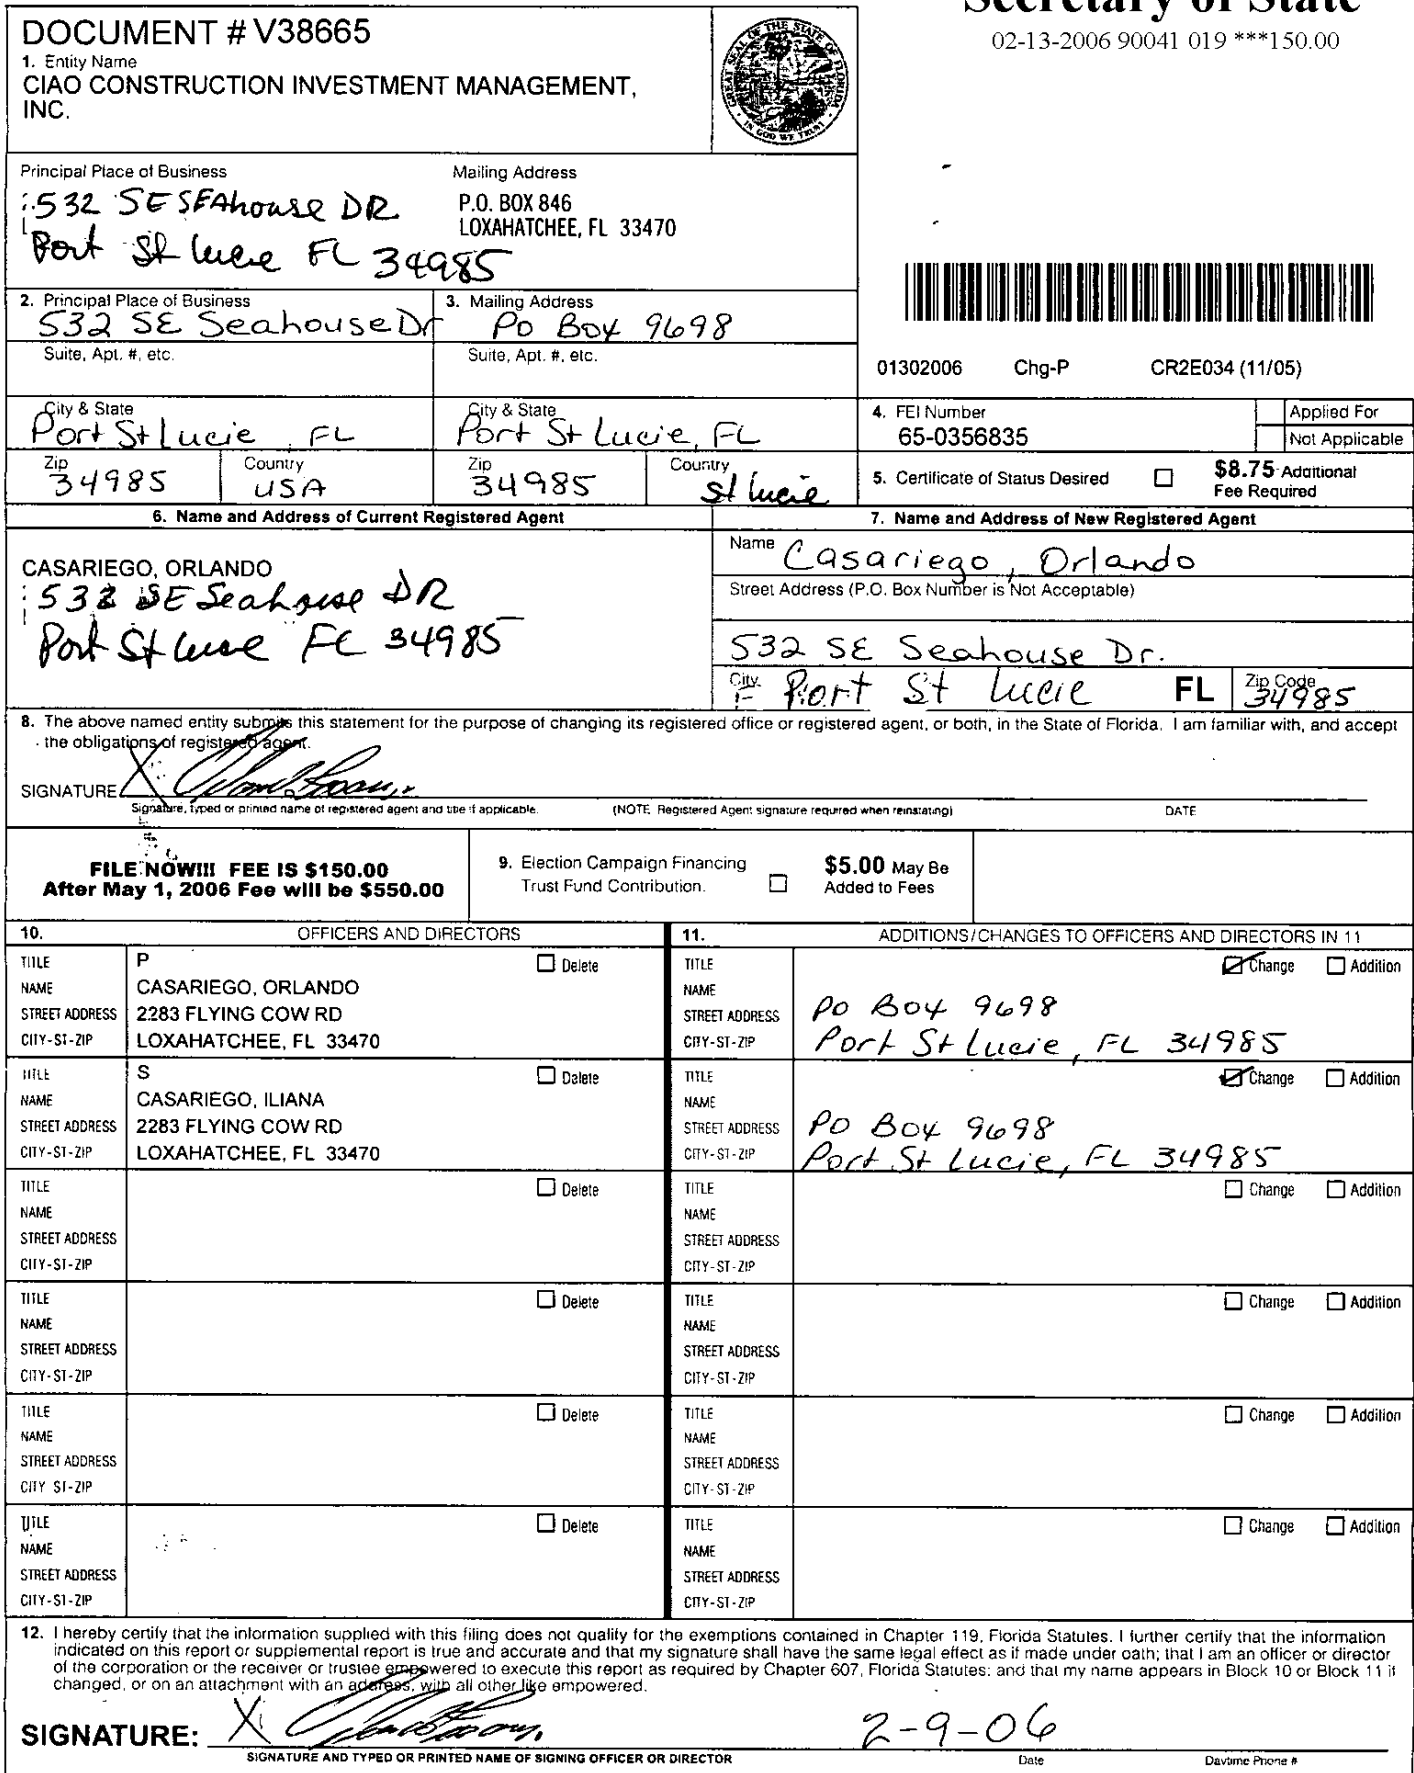 Secretary of State
02-13-2006 90041 019 ***150.00
DOCUMENT # V38665
1. Entity Name
CIAO CONSTRUCTION INVESTMENT MANAGEMENT,
INC.
Principal Place of Business
532 SE SEAhouse DR
Port St Lucie FL 34985
Mailing Address
P.O. BOX 846
LOXAHATCHEE, FL 33470
2. Principal Place of Business
532 SE Seahouse Dr
3. Mailing Address
Po Box 9698
Suite, Apt. #, etc.
Suite, Apt. #, etc.
01302006 Chg-P CR2E034 (11/05)
City & State
Port St Lucie, FL
City & State
Port St Lucie, FL
4. FEI Number
65-0356835
Applied For
Not Applicable
Zip
34985
Country
USA
Zip
34985
Country
St Lucie
5. Certificate of Status Desired
$8.75 Additional
Fee Required
6. Name and Address of Current Registered Agent
CASARIEGO, ORLANDO
532 SE Seahouse DR
Port St Lucie FL 34985
7. Name and Address of New Registered Agent
Name Casariego, Orlando
Street Address (P.O. Box Number is Not Acceptable)
532 SE Seahouse Dr.
City Port St Lucie FL Zip Code 34985
8. The above named entity submits this statement for the purpose of changing its registered office or registered agent, or both, in the State of Florida. I am familiar with, and accept
the obligations of registered agent.
SIGNATURE X
Signature, typed or printed name of registered agent and title if applicable. (NOTE. Registered Agent signature required when reinstating) DATE
FILE NOW!!! FEE IS $150.00
After May 1, 2006 Fee will be $550.00
9. Election Campaign Financing
Trust Fund Contribution.
$5.00 May Be
Added to Fees
10. OFFICERS AND DIRECTORS
11. ADDITIONS/CHANGES TO OFFICERS AND DIRECTORS IN 11
TITLE P Delete
NAME CASARIEGO, ORLANDO
STREET ADDRESS 2283 FLYING COW RD
CITY-ST-ZIP LOXAHATCHEE, FL 33470
TITLE Change Addition
NAME
STREET ADDRESS Po Box 9698
CITY-ST-ZIP Port St Lucie, FL 34985
TITLE S Delete
NAME CASARIEGO, ILIANA
STREET ADDRESS 2283 FLYING COW RD
CITY-ST-ZIP LOXAHATCHEE, FL 33470
TITLE Change Addition
NAME
STREET ADDRESS Po Box 9698
CITY-ST-ZIP Port St Lucie, FL 34985
TITLE Delete
NAME
STREET ADDRESS
CITY-ST-ZIP
TITLE Change Addition
NAME
STREET ADDRESS
CITY-ST-ZIP
TITLE Delete
NAME
STREET ADDRESS
CITY-ST-ZIP
TITLE Change Addition
NAME
STREET ADDRESS
CITY-ST-ZIP
TITLE Delete
NAME
STREET ADDRESS
CITY ST-ZIP
TITLE Change Addition
NAME
STREET ADDRESS
CITY-ST-ZIP
TITLE Delete
NAME
STREET ADDRESS
CITY-ST-ZIP
TITLE Change Addition
NAME
STREET ADDRESS
CITY-ST-ZIP
12. I hereby certify that the information supplied with this filing does not qualify for the exemptions contained in Chapter 119, Florida Statutes. I further certify that the information
indicated on this report or supplemental report is true and accurate and that my signature shall have the same legal effect as if made under oath; that I am an officer or director
of the corporation or the receiver or trustee empowered to execute this report as required by Chapter 607, Florida Statutes; and that my name appears in Block 10 or Block 11 if
changed, or on an attachment with an address, with all other like empowered.
SIGNATURE: X 2-9-06
SIGNATURE AND TYPED OR PRINTED NAME OF SIGNING OFFICER OR DIRECTOR Date Daytime Phone #